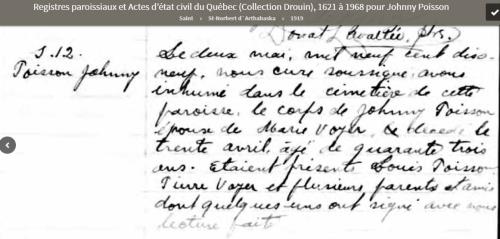 Registres paroissiaux et Actes d'état civil du Québec (Collection Drouin), 1621 à 1968 pour Johnny Poisson
Saint › St-Norbert d'Arthabaska › 1919
Donat
S.12. Le deux mai, mil neuf cent dix-
Poisson Johnny neuf, nous curé soussigné, avons
inhumé dans le cimetière de cette
paroisse, le corps de Johnny Poisson
épouse de Marie Voyer, décédé le
trente avril, âgé de quarante trois
ans. Etaient présents Louis Poisson
Pierre Voyer et plusieurs parents et amis
dont quelques-uns ont signé avec nous
lecture faite